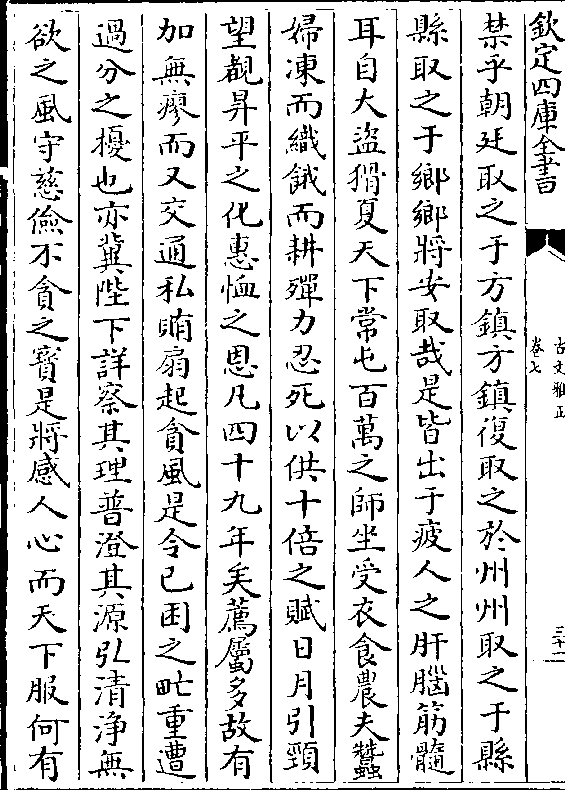 欽定四庫全書
古文雅正
卷七
三十一
禁乎朝廷取之于方鎮方鎮復取之於州州取之于縣
縣取之于鄉鄉將安取哉是皆出于疲人之肝腦筋髓
耳自大盜猾夏天下常屯百萬之師坐受衣食農夫蠶
婦凍而織餓而耕殫力忍死以供十倍之賦日月引頸
望覩昇平之化惠恤之恩凡四十九年矣薦屬多故有
加無瘳而又交通私賄扇起貪風是令已困之甿重遭
過分之擾也亦冀陛下詳察其理普澄其源弘清浄無
欲之風守慈儉不貪之寶是將感人心而天下服何有